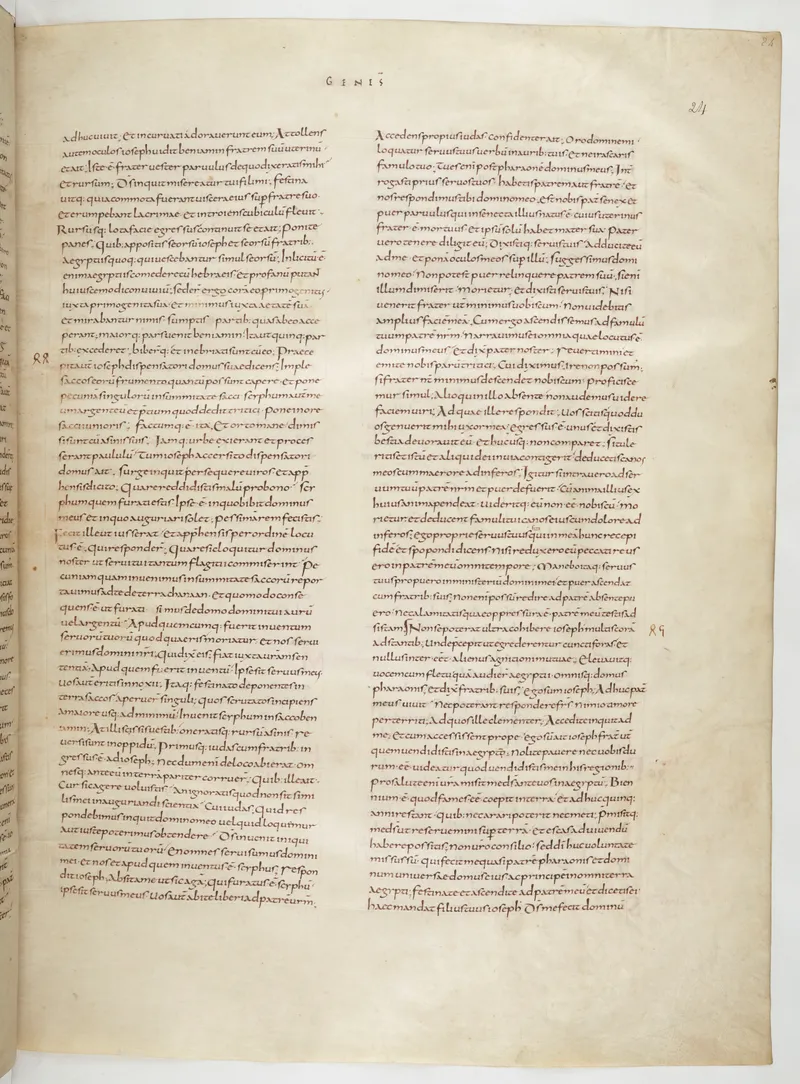 GENIS̄
24
adhuc uiuit; Et incuruati adorauerunt eum; Attollens
autem oculos ioseph uidit beniamin fratrem suū uterinū
et ait; Iste ē frater uester paruulus de quo dixeratis mihi·
Et rursum; Ds̄ inquit misereatur tui fili mi; festina
uitq: quia commota fuerant uiscera eius sup̄ fratre suo
et erumpebant lacrimae· Et introiens cubiculū fleuit·
Rursūsq: lota facie egressus continuit se et ait; Ponite
panes. Quib: appositis seorsū ioseph et seorsū fratrib:
aegyptiis quoq: qui uescebantur simul seorsū; Inlicitū ē
enim aegyptiis comedere cū hebraeis et profanū putant
huiuscemodi conuiuiū; federt ergo corā eo primogenitus
iuxta primogenita sua· Et minimus iuxta aetatē suā
et mirabantur nimis sumptis partib: quas ab eo acce
perant; maiorq: pars uenit beniamin· Ita ut quinq: par
tib: excederet; biberq: et inebriati sunt cū eo; Praece
88
pit aut̄ ioseph dispensatori domus suae dicens; Imple
saccos eorū frumento quantū possunt capere· Et pone
pecuniā singulorū in summitate sacci· scyphum aut̄ me
um argenteū et p̄cium quod dedit tritici pone in ore
sacci iunioris; factumq: ē ita; Et orto mane dimis
si sunt cū asinis suis; Iamq: urbe exierant et proces
serant paululū· Tum ioseph accersito dispensatori
domus ait; surge inquit persequere uiros et app̄
hensis dicito; Quare reddidistis malū pro bono· Scy
phum quem furati estis· Ipse ē in quo bibit dominus
meus et in quo augurari solet; pessimā rem fecistis;
Fecit ille ut iusserat· Et app̄hensis per ordinē locu
tus ē; qui responder̄; Quare sic loquitur dominus
noster ut serui tui tantum flagitii commiserint· Pe
cuniam quam inuenimus in summitate saccorū repor
tauimus ad te de terra chanaan· Et quomodo conse
quens ē ut furati simus de domo domini tui aurū
uel argentū· Apud quemcumq: fuerit inuentum
seruorū tuorū quod quaeris moriatur· Et nos serui
erimus domini nr̄i; Qui dix̄ eis; fiat iuxta uram sen
tentiā· Apud quem fuerit inuentū· Ipse sit seruus meus·
Uos aut̄ eritis innoxii; Itaq: festinato deponentes in
terrā saccos aperuer̄ singuli; quos scrutatos incipiens
a maiore usq: ad minimū inuenit scyphum in sacco ben
iamin; At illi scissis uestib: oneratisq: rursū asinis re
uersi sunt in oppidū; Primusq: iudas cum fratrib: in
gressus ē ad ioseph; Necdum enim de loco abierat· om
nesq: ante eū in terrā pariter corruer̄; Quib: ille ait·
Cur sic agere uoluistis· An ignoratis quod non sit simi
lis mei in augurandi scientia· Cui iudas; Quid res
pondebimus inquit domino meo uel quid loquēmur
aut iuste poterimus obtendere· Ds̄ inuenit iniqui
tatem seruorū tuorū· En omnes serui sumus domini
mei· et nos et apud quem inuentus ē scyphus; Respon
dit ioseph; Absit a me ut sic agā; qui furatus ē scyphū
ipse sit seruus meus· Uos aut̄ abite liberi ad patrē ur̄m;
Accedens propius iudas confidenter ait; Oro domine mi
loquatur seruus tuus uerbū in aurib: tuis· Et ne irascaris
famulo tuo; Tu es enī post pharaonē dominus meus; Int̄
rogasti prius seruos tuos habetis patrem aut fratrē· Et
nos respondimus tibi domino meo· est nobis pat̄ senex et
puer paruulus qui in senecta illius natus ē cuius uterinus
frater ē mortuus· et ipsū solū habet mater sua; Pater
uero tenere diligit eū; Dixistiq: seruis tuis· Adducite eū
ad me· Et ponā oculos meos sup̄ illū; suggessimus domi
no meo· Non potest puer relinquere patrem suū; si enī
illum dimiserit morietur; Et dixisti seruis tuis; Nisi
uenerit frater ur̄ minimus uobiscum· Non uidebitis
amplius faciē meā; Cum ergo ascendissemus ad famulū
tuum patrē nr̄m· Narrauimus ei omnia quae locutus ē
dominus meus· Et dix̄ pater noster; reuertimini et
emite nobis parū tritici; Cui diximus; ire non possum;
si frater nr̄ minimus descendet nobiscum· Proficisce
mur simul; Alioquin illo absente non audemus uidere
faciem uiri; Ad quae ille respondit; Uos scitis quod du
os genuerit mihi uxor mea; egressus ē unus et dixistis
bestia deuorauit eū· Et hucusq: non comparet; si tule
ritis et istū et aliquid ei in uia contigerit deducetis canos
meos cum maerore ad inferos; Igitur si intrauero ad ser
uum tuū patrē nr̄m et puer defuerit· Cū anima illius ex
huius anima pendeat· Uideritq: eū non eē nobiscū· mo
rietur· et deducent famuli tui canos eius cum dolore ad
inferos; ego proprie seruus tuus sim qui in meā hunc recepi
fidē et spopondi dicens· Nisi reduxero eū peccati reus
ero in patrē meū omni tempore; Manebo itaq: seruus
tuus pro puero in ministeriū domini mei· Et puer ascendat
cum fratrib: suis; Non enī possū redire ad patrē absente pu
ero· ne calamitatis quae oppressura ē patrē meū testis ad
sistam; Non se poterat ultra cohibere ioseph multis corā
89
adstantib; Unde p̄cepit ut egrederentur cuncti foras et
nullus interēēt alienus agnitioni mutuae; Eleuauitq:
uocem cum fletu quā audier̄ aegyptii· omnisq: domus
pharaonis; Et dix̄ fratrib: suis; ego sum ioseph; Adhuc pat̄
meus uiuit· Nec poterant respondere frs̄ nimio amore
perterriti; Ad quos ille clementer; Accedite inquit ad
me; Et cum accessissent prope· ego sū ait ioseph frat̄ ur̄
quem uendidistis in aegyptū; Nolite pauere nec uobis du
rum eē uideatur quod uendidistis me in his regionib:
Pro salute enī ur̄a misit me ds̄ ante uos in aegyptū; Bien
nium ē quod fames eē coepit in terra· Et adhuc quinq:
anni restant quib: nec arari poterit nec meti; P̄misitq:
me ds̄ ut reseruemini sup̄ terrā· Et escas ad uiuendū
habere possitis; non ur̄o consilio· sed dī huc uoluntate
missus sū· qui fecit me quasi patrē pharaonis et domi
num uniuersae domus eius ac principē in omni terra
aegypti; festinate et ascendite ad patrē meū et dicetis ei·
haec mandat filius tuus ioseph· Ds̄ me fecit dominū